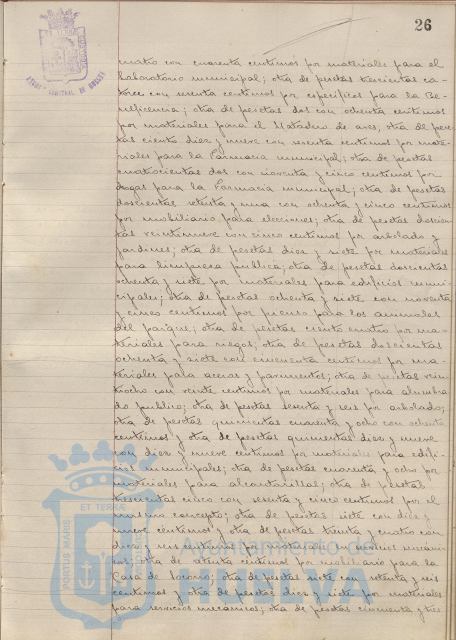 26
cuatro con cuarenta centimos por materiales para el
laboratorio municipal; otra de pesetas trescientas ca-
torce con setenta centimos por especificos para la Be-
neficencia; otra de pesetas dos con ochenta centimos
por materiales para el Matadero de aves; otra de pese-
tas ciento diez y nueve con sesenta centimos por mate-
riales para la Farmacia municipal; otra de pesetas
cuatrocientas dos con noventa y cinco centimos por
drogas para la Farmacia municipal; otra de pesetas
doscientas setenta y una con ochenta y cinco centimos
por mobiliario para elecciones; otra de pesetas doscien-
tas veintinueve con cinco centimos por arbolado y
jardines; otra de pesetas diez y siete por materiales
para limpieza publica; otra de pesetas doscientas
ochenta y siete por materiales para edificios muni-
cipales; otra de pesetas ochenta y siete con noventa
y cinco centimos por pienso para los animales
del parque; otra de pesetas ciento cuatro por ma-
teriales para riegos; otra de pesetas doscientas
ochenta y siete con cincuenta centimos por ma-
teriales para aceras y pavimentos; otra de pesetas vein-
tiocho con veinte centimos por materiales para alumbra-
do publico; otra de pesetas setenta y seis por arbolado;
otra de pesetas quinientas cuarenta y ocho con ochenta
centimos y otra de pesetas quinientas diez y nueve
con diez y nueve centimos por materiales para edifi-
cios municipales; otra de pesetas cuarenta y ocho por
materiales para alcantarillas; otra de pesetas
trescientas cinco con setenta y cinco centimos por el
mismo concepto; otra de pesetas siete con diez y
nueve centimos y otra de pesetas treinta y cuatro con
diez y seis centimos por materiales en servicios mecani-
cos; otra de setenta centimos por mobiliario para la
Casa de Socorro; otra de pesetas siete con setenta y seis
centimos y otra de pesetas diez y siete por materiales
para servicios mecánicos; otra de pesetas cincuenta y tres
PORTUS MARIS
ET TERRÆ
Ayuntamiento de
HUELVA